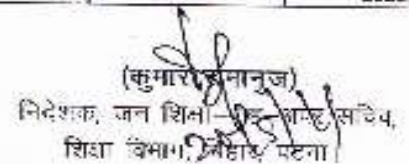 (कुमार रामानुज)
निदेशक, जन शिक्षा-सह-अपर सचिव,
शिक्षा विभाग, बिहार, पटना।